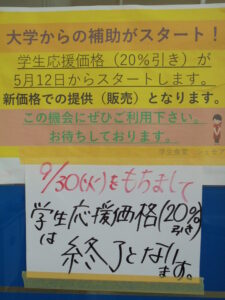 大学からの補助がスタート!
学生応援価格(20%引き)が
5月12日からスタートします。
新価格での提供(販売)となります。
この機会にぜひご利用下さい。
お待ちしております。
9/30(火)をもちまして
学生応援価格(20%引き)
は
終了となります。